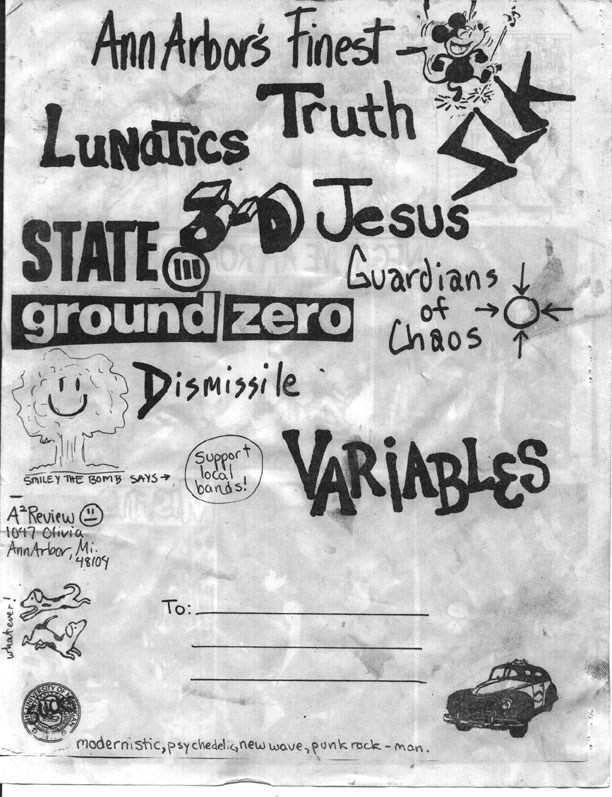 Ann Arbor's Finest -
Truth
SUK
Lunatics
3-D Jesus
STATE III
Guardians
of
Chaos
ground zero
Dismissile
SMILEY THE BOMB SAYS →
Support
local
bands!
VARiABLES
A² Review
1047 Olivia
Ann Arbor, Mi.
48104
whatever!
To:
THE UNIVERSITY OF MICHIGAN
modernistic, psychedelic, new wave, punk rock - man.